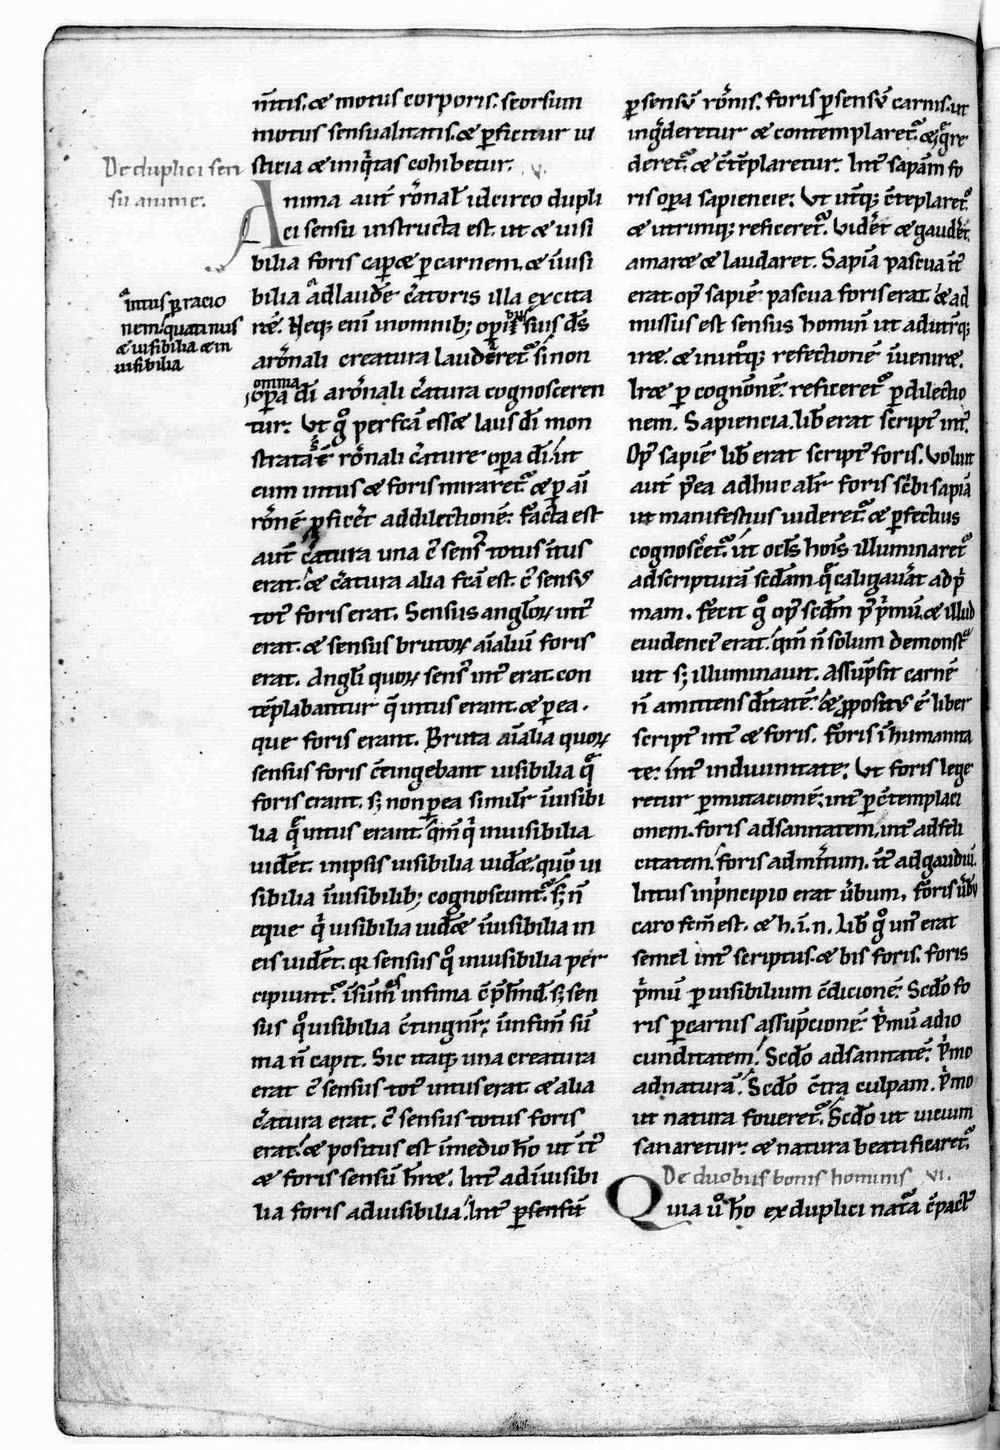 m̄tis. & motus corporis. seorsum
motus sensualitatis. & ꝑficitur iu
sticia & iniq̇tas cohibetur. .v.
De duplici sen
su anime.
Anima aut̄ rōnał idcirco dupli
ci sensu instructa est. ut & uisi
bilia foris caꝑ& ꝑ carnem. & īuisi
bilia ad laudē c̄atoris illa excita
intus ꝑ racio
nem. quatinus
& uisibilia & in
uisibilia
rē. Neq; eni inomnib; opib; suis d̄s
arōnali creatura laudēret᷑ si non
omnia oꝑa dī arōnali c̄atura cognosceren
tur. Ut g̊ perfc̄a ess& laus dī mon
strata s̄t rōnali c̄ature oꝑa dī. ut
cum intus & foris miraret᷑ & ꝑ aī
rōnē ꝓficēt addilectionē. Facta est
aut̄ c̄atura una c̄ sens᷒ totus ītus
erat. & c̄atura alia fc̄a est. c̄ sensus
tot᷒ foris erat. Sensus angłoꝝ int᷒
erat. & sensus brutoꝝ aīaliū foris
erat. Angłi quoꝝ sens᷒ int᷒ erat. con
tēplabantur q̄ intus erant. & ꝑ ea.
que foris erant. Bruta aīalia quoꝝ
sensus foris c̄tingebant uisibilia q̄
foris erant. s; non ꝑ ea similr̄ īuisibi
lia q̄ intus erant. qm̄ q̇ inuisibilia
uidēt. inipsis uisibilia uid&. quo ui
sibilia īuisibilib; cognoscunt᷑. s; n̄
eque q̇ uisibilia uid& īuisibilia in
eis uidēt. quia sensus q̊ inuisibilia per
cipiunt᷑. īsūmis infima c̄p̄hend̄. s; sen
sus q̊ uisibilia c̄tingunt̄; īinfimis sū
ma n̄ capit. Sic itaq; una creatura
erat c̄ sensus tot᷒ intus erat. & alia
c̄atura erat. c̄ sensus totus foris
erat. & positus est īmedio hō ut īt᷒
& foris sensū hr̄e. Int᷒ ad īuisibi
lia foris ad uisibilia. Int᷒ ꝑ sensū
ꝑ sensū rōnis. foris ꝑ sensū carnis. ut
ingrederetur & contemplaret᷑. & egre
deret᷑. & c̄tēplaretur. Int᷒ sapiam fo
ris oꝑa sapiencie. Ut utrūq; c̄teplaret᷑
& utrimq; reficeret᷑. Videt & gaudēt.
amar& & laudaret. Sapiā pascua īt᷒
erat. op᷒ sapiē pascua foris erat. & ad
missus est sensus hominū ut ad utrūq;
iret. & in utroq; refectionē īueniret.
Iret ꝑ cognicionē. reficeret᷑ ꝑ dilectio
nem. Sapiencia. lib̄ erat script᷒ int᷒.
Op᷒ sapiē lib̄ erat script᷒ foris. Voluit
aut̄ p᷒ea adhuc alr̄ foris sc̄bi sapiā
ut manifestius uideret᷑ & ꝑfectius
cognoscēt᷑. ut ocls̄ hōis illuminaret᷑
ad scripturā sedam. q̄ caligauāt ad p̄
mam. Fecit g̊ op᷒ secd̄m p᷒ p̄mū. & illud
euidenci᷒ erat. qm̄ n̄ solum demonst᷑
uit s; illuminauit. Assūpsit carnē
n̄ amittens diuitatē. & ꝓpositus ē liber
script᷒ int᷒ & foris. Foris ī humanita
te: int᷒ indiuinitate: Ut foris lege
retur ꝑ mutacionē: int᷒ ꝑ c̄templaci
onem. foris adsanitatem. int᷒ adfeli
citatem. foris admeritum. īt᷒ ad gaudiū.
Intus inprincipio erat ūbum. Foris ūbū
caro fcm̄ est. & h. i. n. Lib̄ g̊ un᷒ erat
semel int᷒ scriptus. & bis foris. Foris
p̄mū ꝑ uisibilium c̄dicionē: Scd̄o fo
ris ꝑ carnis assūpcionē. P̄mū adio
cunditatem. Scd̄o adsanitatē. P̄mo
adnaturā. Scd̄o c̄tra culpam. P̄mo
ut natura foueret᷑. Scd̄o ut uicium
sanaretur. & natura beatificaret᷑.
De duobus bonis hominis .vi.
Quia ů hō exduplici nat᷑a c̄pact᷒